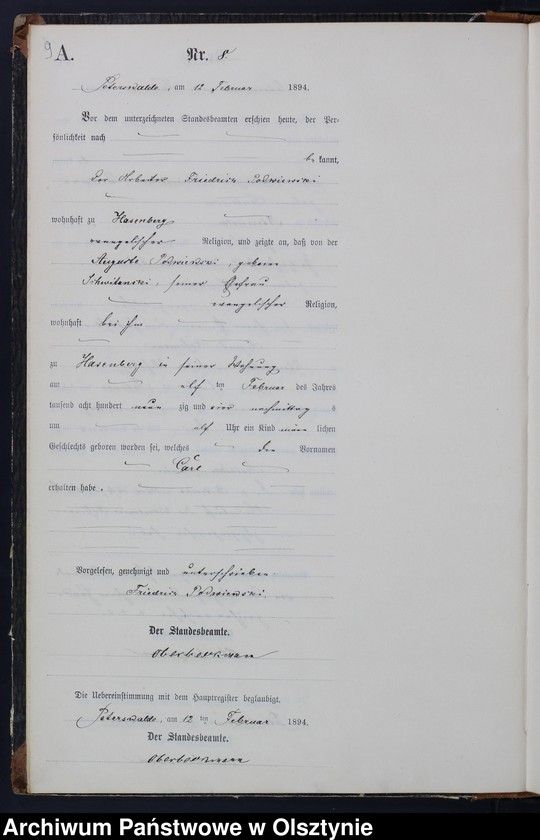 9
A. Nr. 8
Peterswalde, am 12 Februar 1894.
Vor dem unterzeichneten Standesbeamten erschien heute, der Per-
sönlichkeit nach
be kannt,
der Arbeiter Friedrich
wohnhaft zu Hasenberg
evangelischer Religion, und zeigte an, daß von der
Auguste geborene
seiner Ehefrau
evangelischer Religion,
wohnhaft bei ihm
zu Hasenberg in seiner Wohnung
am elf ten Februar des Jahres
tausend acht hundert neun zig und vier nachmittag s
um elf Uhr ein Kind männ lichen
Geschlechts geboren worden sei, welches den Vornamen
Carl
erhalten habe.
Vorgelesen, genehmigt und unterschrieben.
Friedrich
Der Standesbeamte.
Die Uebereinstimmung mit dem Hauptregister beglaubigt.
Peterswalde, am 12 ten Februar 1894.
Der Standesbeamte.
Archiwum Państwowe w Olsztynie